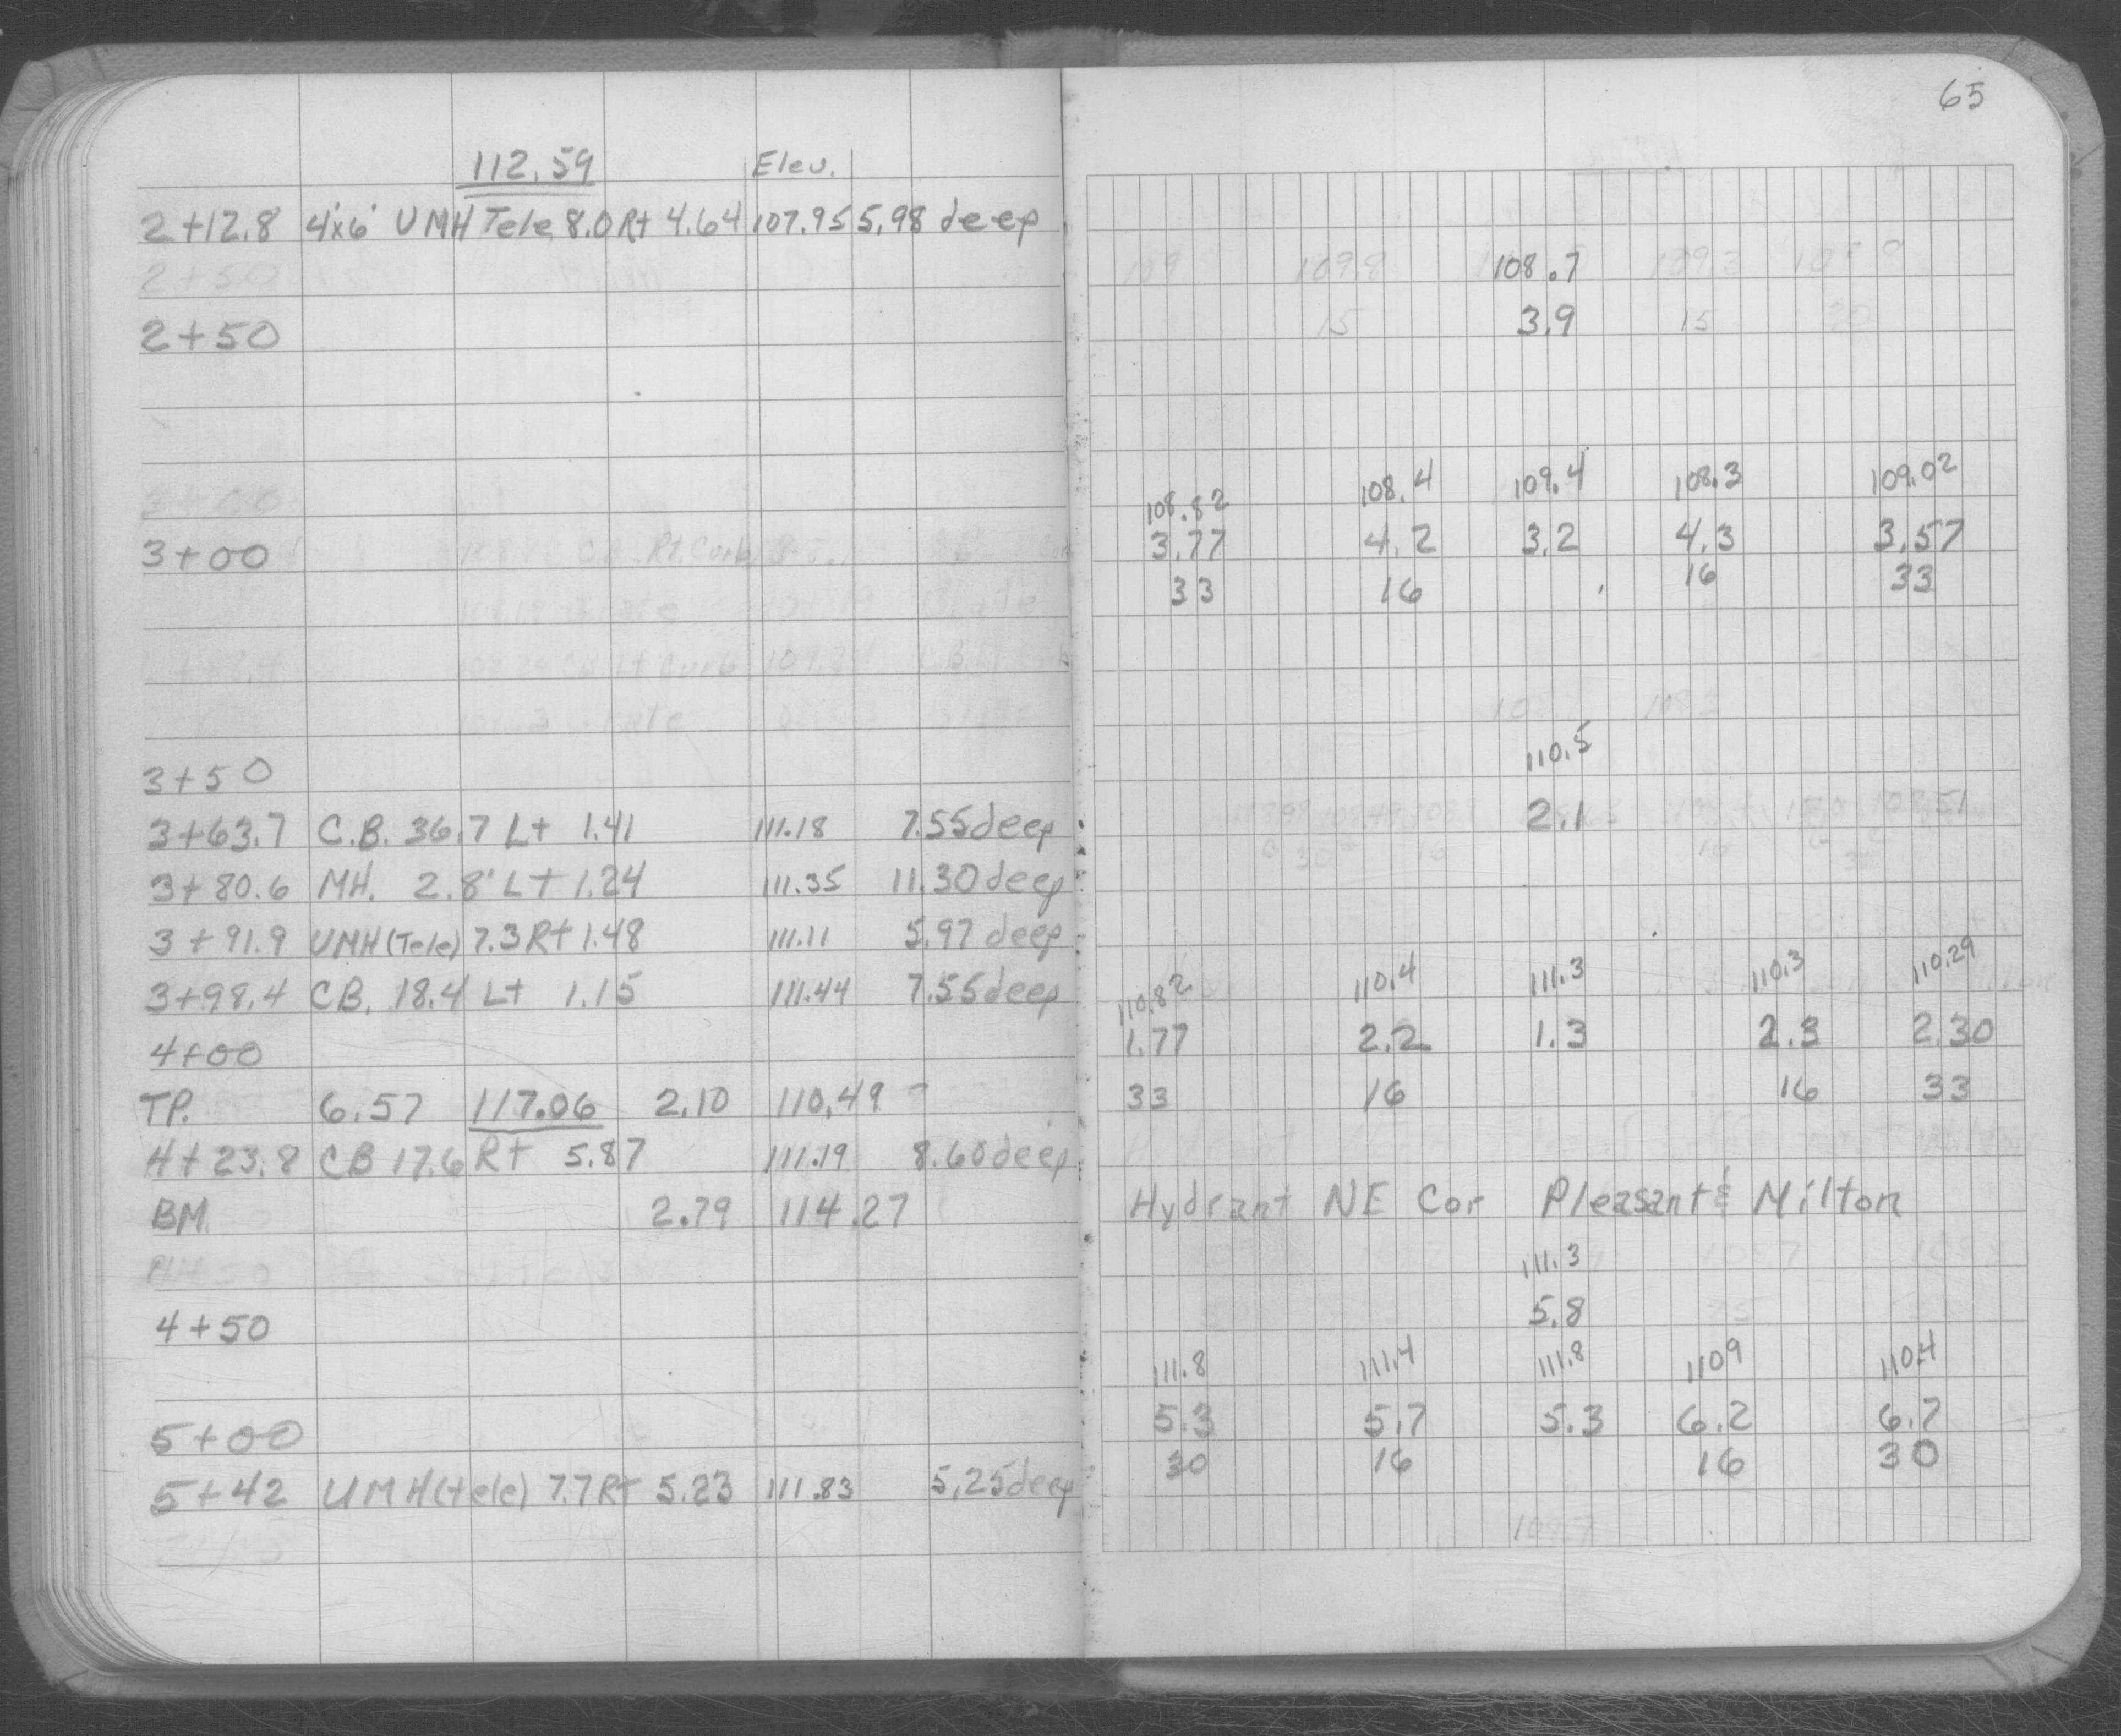 65
112.59 Elev.
2+12.8 4'x6' UMH Tele 8.0 Rt 4.64 107.95 5.98 deep
108.7
2+50 3.9
108.82 108.4 109.4 108.3 109.02
3+00 3.77 4.2 3.2 4.3 3.57
33 16 16 33
110.5
3+50
2.1
3+63.7 C.B. 36.7 Lt 1.41 111.18 7.55 deep
3+80.6 MH. 2.8' Lt 1.24 111.35 11.30 deep
3+91.9 UMH (Tele) 7.3 Rt 1.48 111.11 5.97 deep
110.82 110.4 111.3 110.3 110.29
3+98.4 CB. 18.4 Lt 1.15 111.44 7.55 deep
4+00 1.77 2.2 1.3 2.3 2.30
33 16 16 33
TP. 6.57 117.06 2.10 110.49
4+23.8 CB 17.6 Rt 5.87 111.19 8.60 deep
BM. 2.79 114.27 Hydrant NE Cor Pleasant & Milton
111.3
4+50 5.8
111.8 111.4 111.8 110.9 110.4
5+00 5.3 5.7 5.3 6.2 6.7
30 16 16 30
5+42 UMH (tele) 7.7 Rt 5.23 111.83 5.25 deep